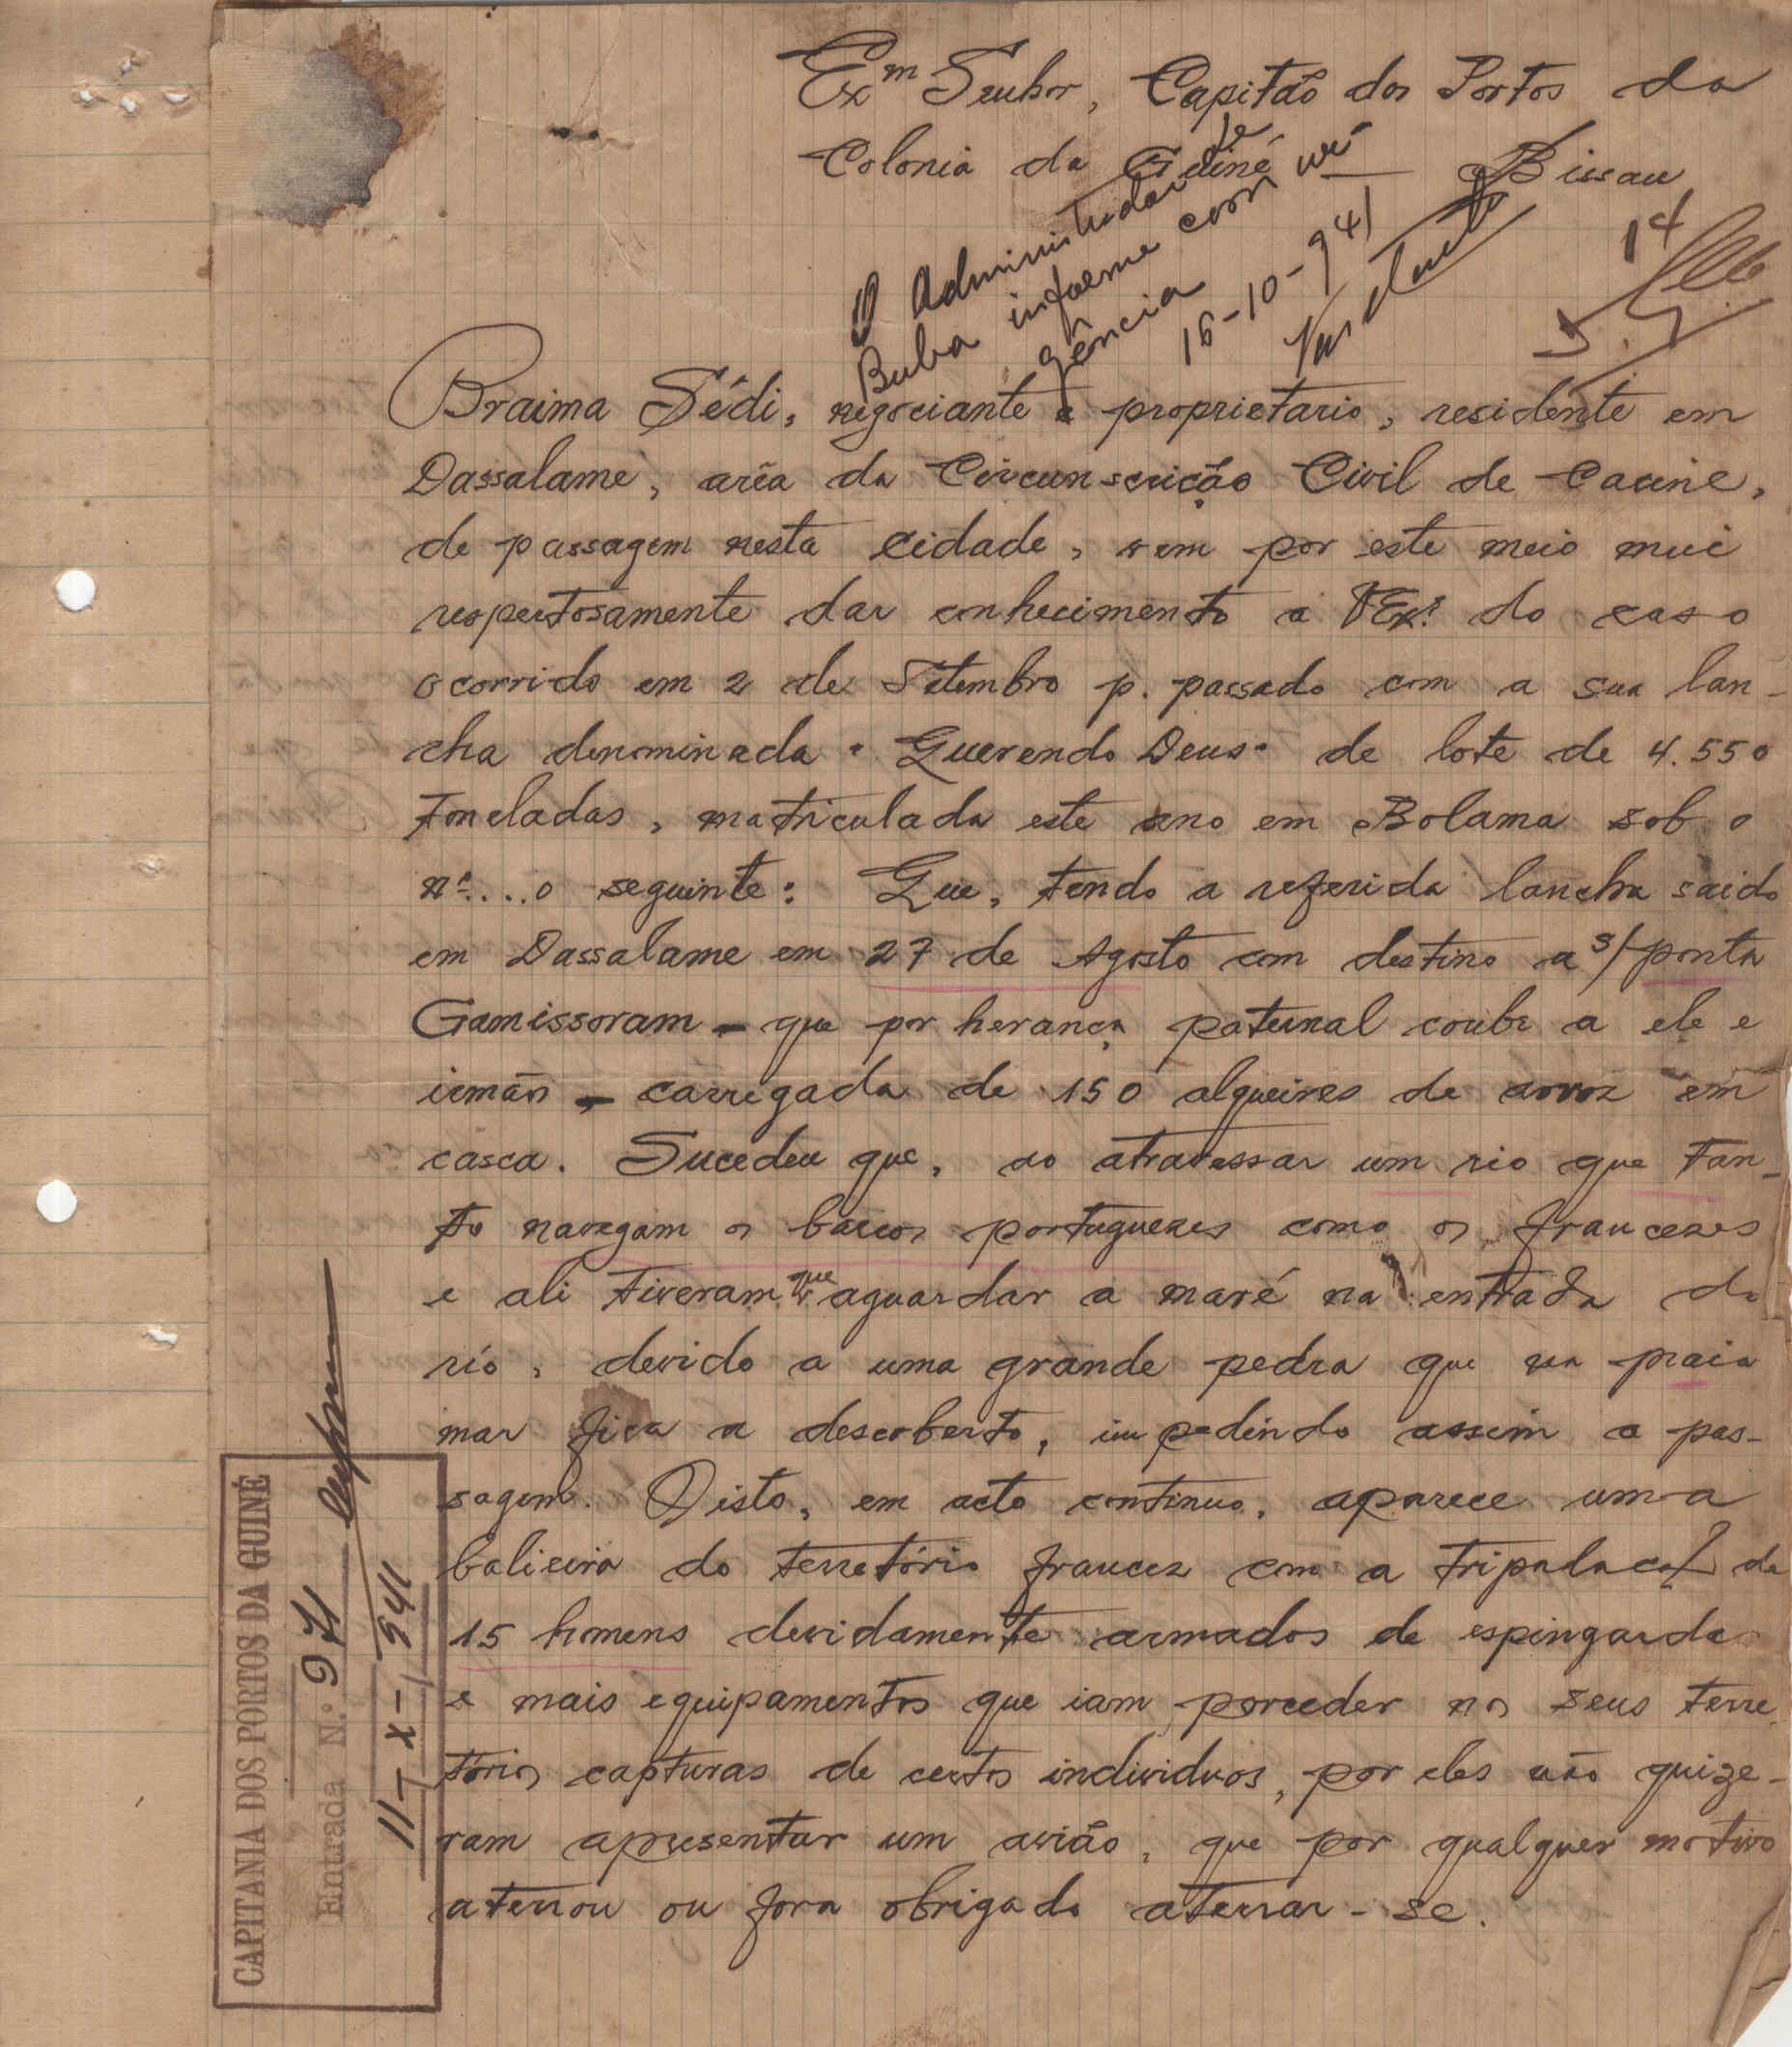 Exm Senhor, Capitão dos Portos da
Colonia da Guiné — Bissau
O Administrador de
Buba informe com ur
gência
16-10-941
14
Braima Sédi, negociante e proprietario, residente em
Dassalame, aréa da Circunscrição Civil de Cacine,
de passagem nesta cidade, vem por este meio mui
respeitosamente dar conhecimento a VExª do caso
ocorrido em 2 de Setembro p. passado com a sua lan-
cha denominada "Querendo Deus" de lote de 4.550
toneladas, matriculada este ano em Bolama sob o
nº... o seguinte: Que, tendo a referida lancha saido
em Dassalame em 27 de Agosto com destino a s/ponta
Gamissoram - que por herança paternal coube a ele e
irmãos - carregada de 150 alqueires de arroz em
casca. Sucedeu que, ao atravessar um rio que tan-
to navegam os barcos portuguezes como os francezes
e ali tiveram que aguardar a maré na entrada do
rio, devido a uma grande pedra que na praia
mar fica a descoberto, impedindo assim a pas-
sagem. Disto, em acto continuo, aparece uma
balieira do terretório francez com a tripulação de
15 homens devidamente armados de espingarda
e mais equipamentos que iam porceder nos seus terre-
tórios capturas de certos individuos, por eles não quize-
ram apresentar um avião, que por qualquer motivo
aterrou ou fora obrigado aterrar-se.
CAPITANIA DOS PORTOS DA GUINÉ
Entrada N.º 971
11-X-941